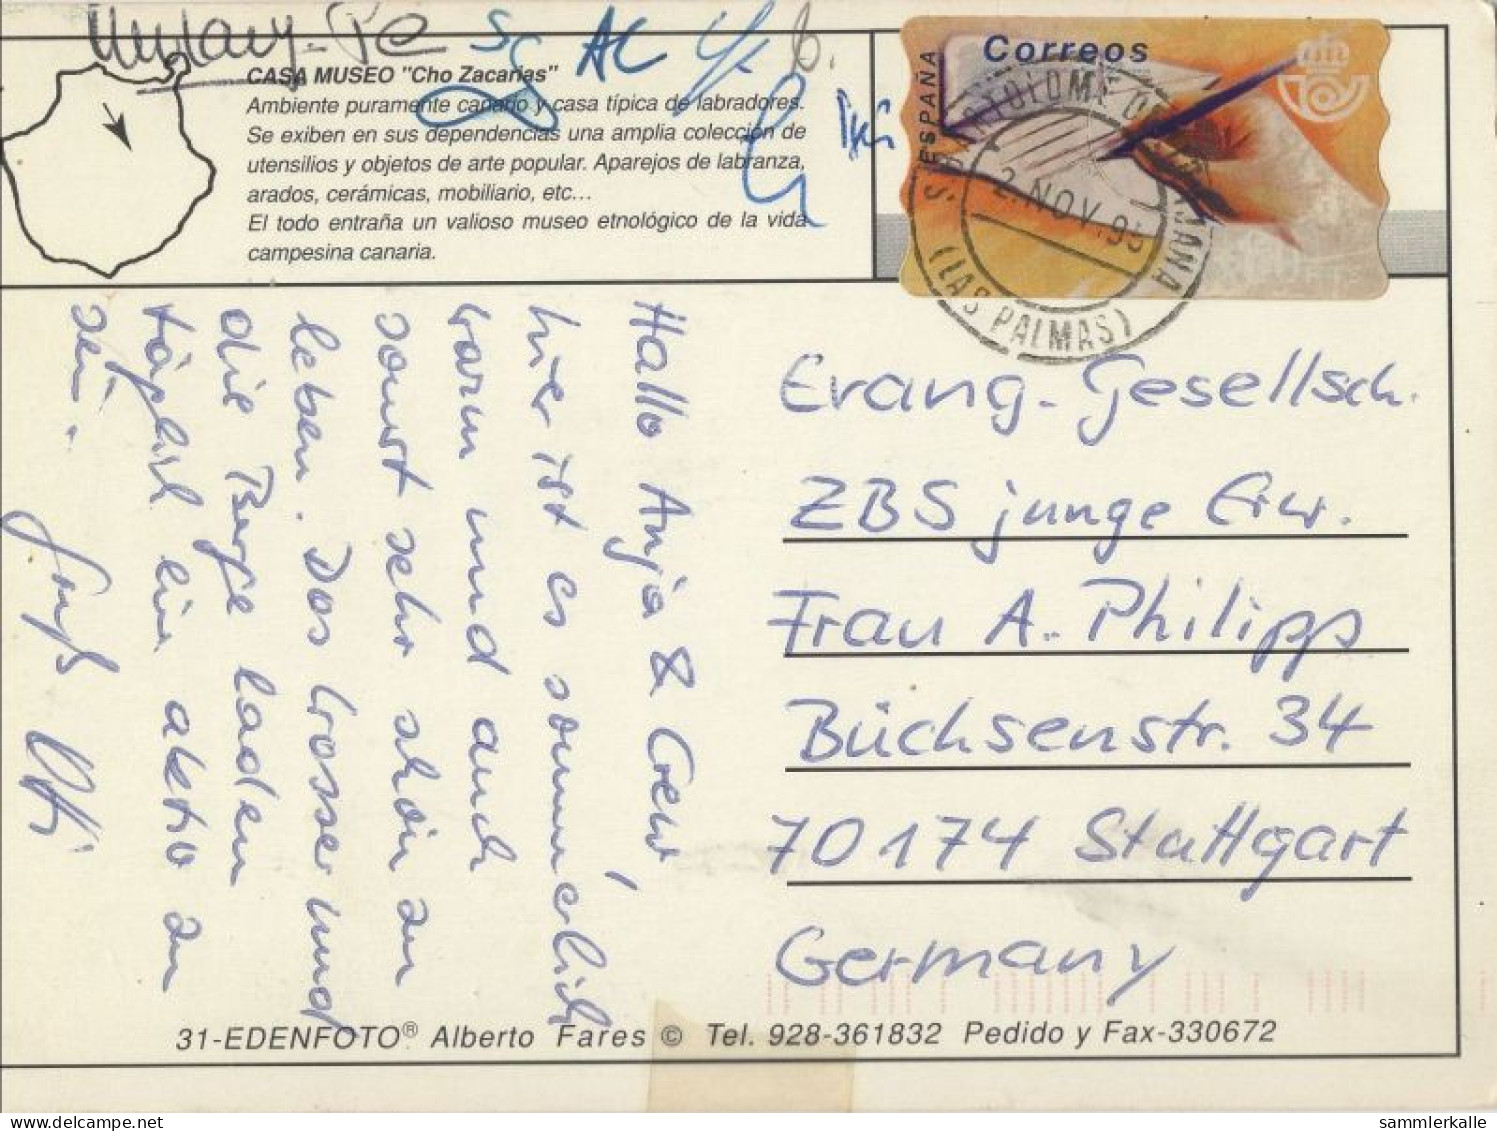 CASA MUSEO "Cho Zacarias"
Ambiente puramente canario y casa típica de labradores.
Se exiben en sus dependencias una amplia colección de
utensilios y objetos de arte popular. Aparejos de labranza,
arados, cerámicas, mobiliario, etc...
El todo entraña un valioso museo etnológico de la vida
campesina canaria.
SG AC
Correos
ESPAÑA
S. BARTOLOME DE TIRAJANA
2. NOV. 95
(LAS PALMAS)
Hallo Anja & Crew,
hier ist es sommerlich
warm und auch
sonst sehr schön zu
leben. Das Wasser und
die Berge laden
täglich ein aktiv zu
sein.
Gruß
Evang. Gesellsch.
ZBS junge Erw.
Frau A. Philipp
Büchsenstr. 34
70174 Stuttgart
Germany
31-EDENFOTO® Alberto Fares © Tel. 928-361832 Pedido y Fax-330672
www.delcampe.net
sammlerkalle